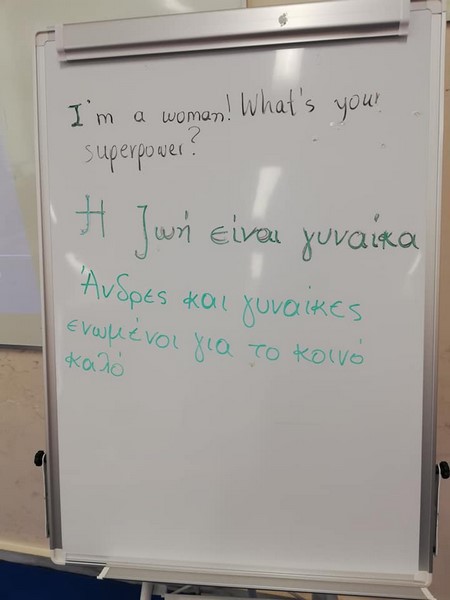 I'm a woman! What's your
superpower?
Η ζωή είναι γυναίκα
Άνδρες και γυναίκες
ενωμένοι για το κοινό
καλό